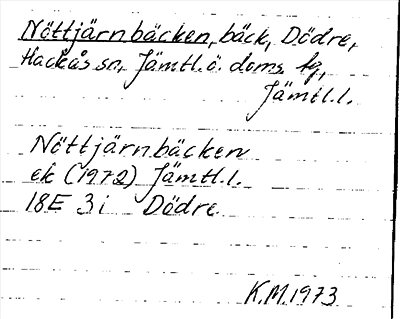 Nöttjärnbäcken, bäck, Dödre,
Hackås sn, Jämtl.ö. doms. fg,
Jämtl.l.
Nöttjärnbäcken
ek (1972) Jämtl.l.
18E 3i Dödre
K.M.1973